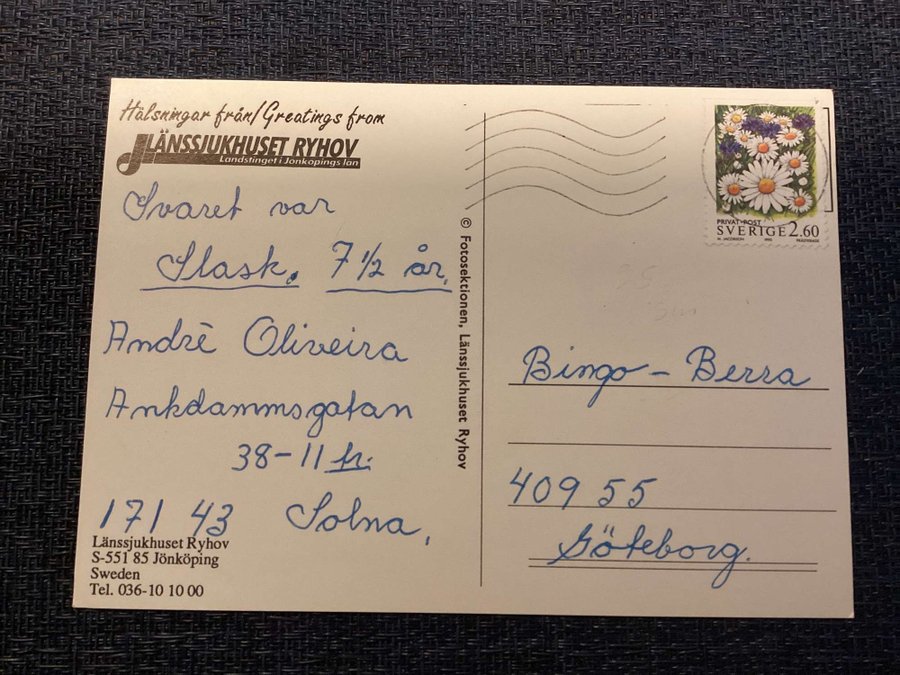 Hälsningar från/Greatings from
LÄNSSJUKHUSET RYHOV
Landstinget i Jönköpings län
Svaret var
Slask. 7 1/2 år.
Andrè Oliveira
Ankdammsgatan
38-11 tr.
171 43 Solna,
Länssjukhuset Ryhov
S-551 85 Jönköping
Sweden
Tel. 036-10 10 00
© Fotosektionen, Länssjukhuset Ryhov
PRIVAT-POST
SVERIGE 2.60
M. JACOBSON
Bingo - Berra
409 55
Göteborg.